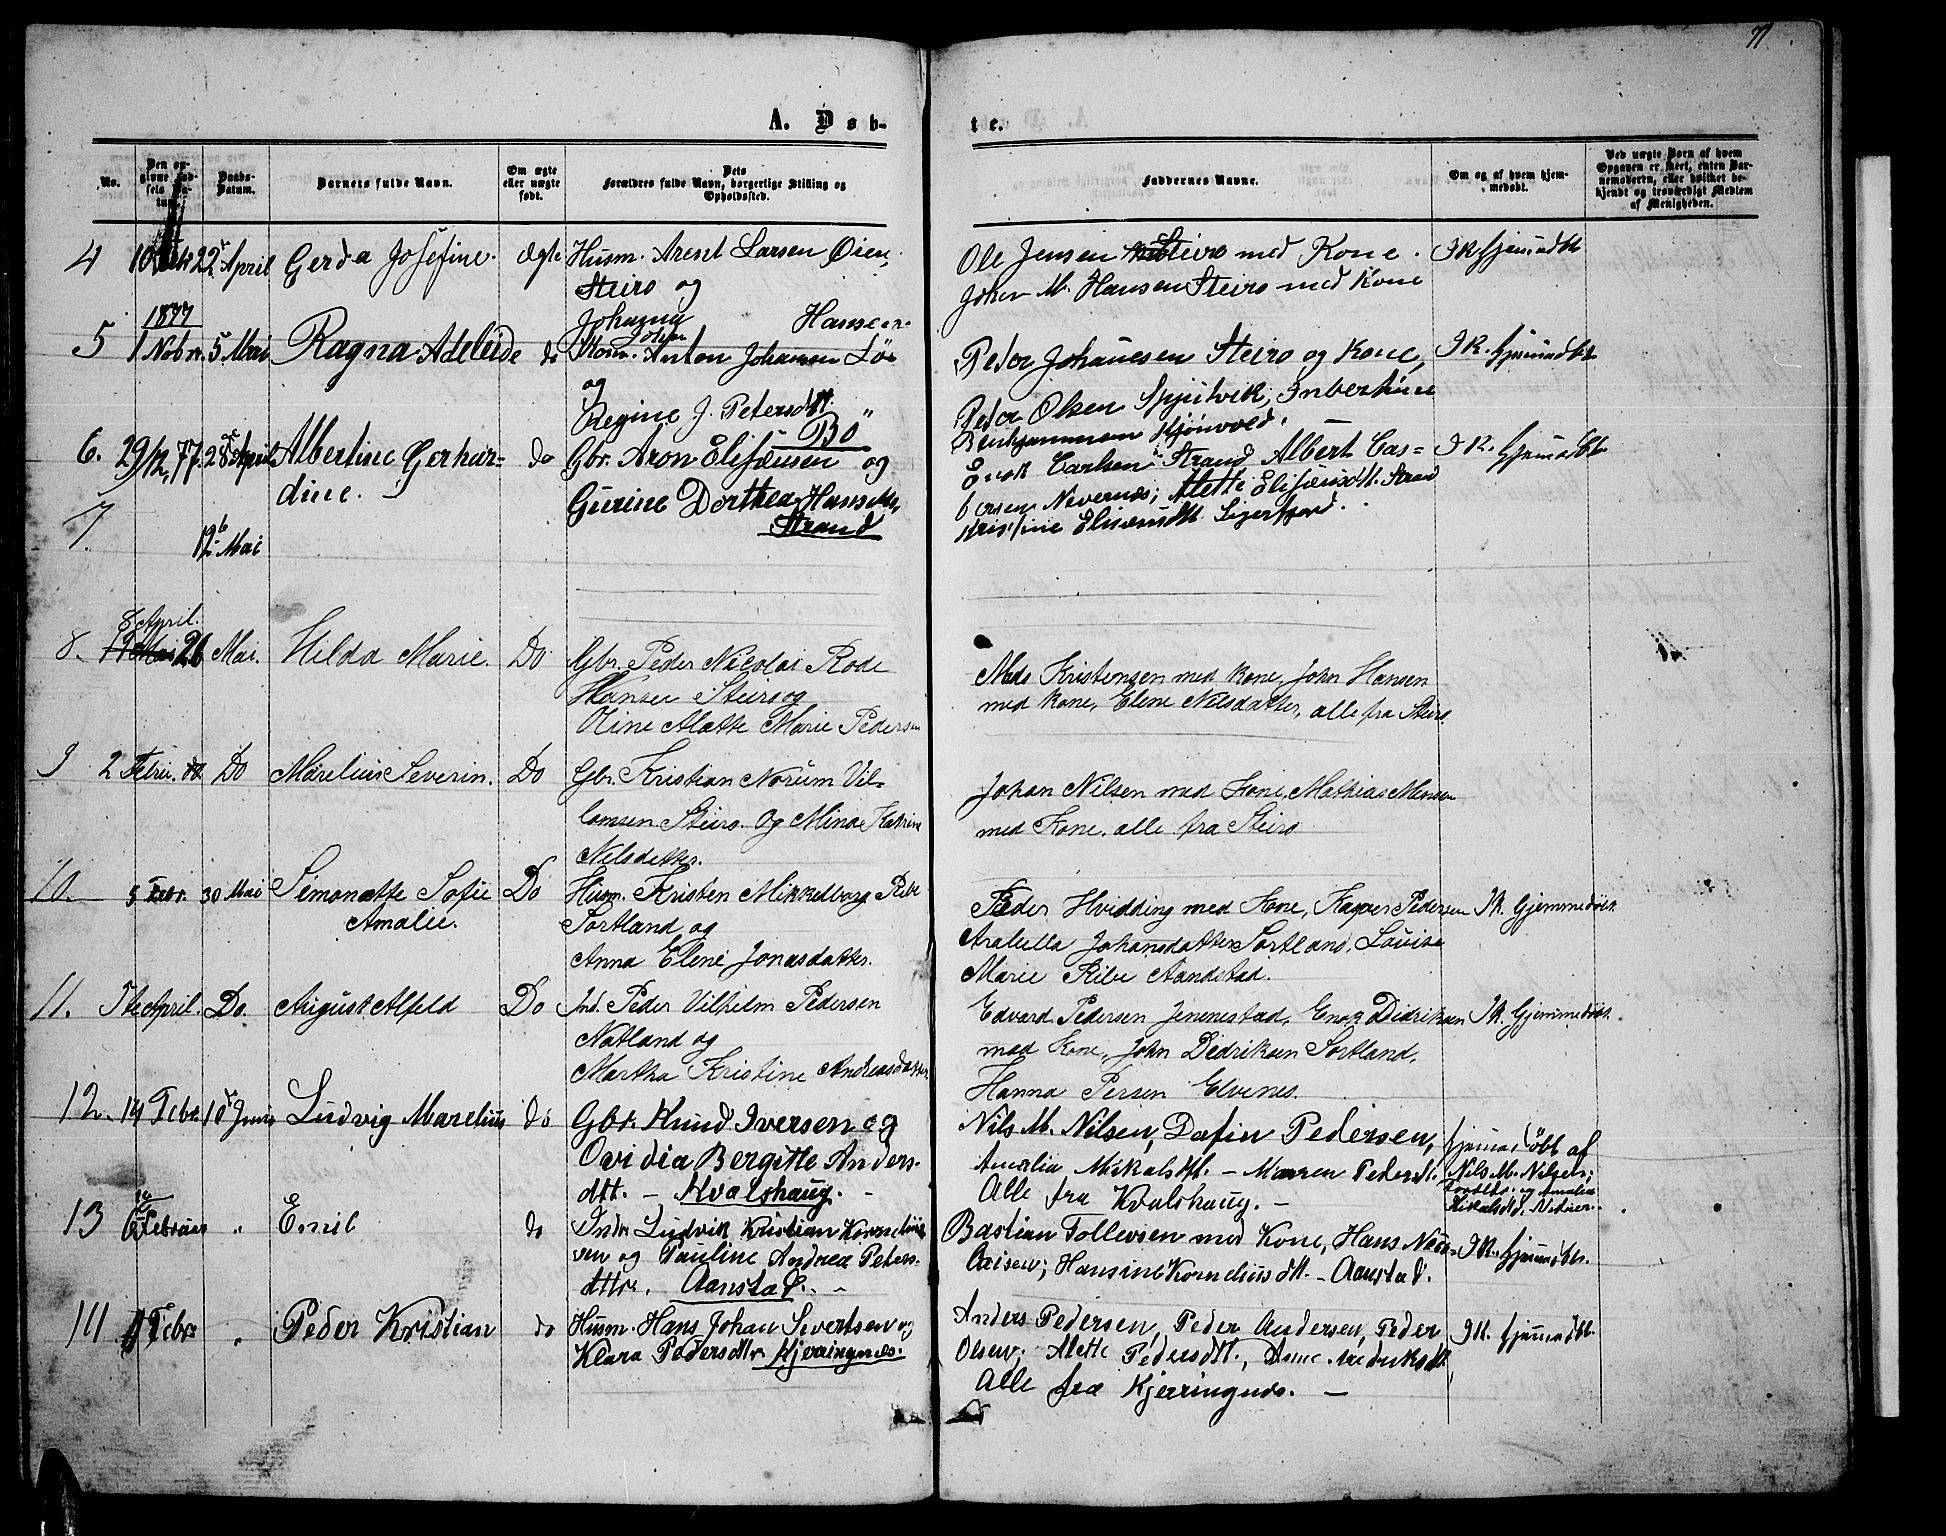 71
A. Døb-
te.
No.
Den opgivne Fødsels Datum.
Daabs-Datum.
Barnets fulde Navn.
Om ægte eller uægte født.
Dets Forældres fulde Navn, borgerlige Stilling og Opholdssted.
Faddernes Navne.
Om og af hvem hjemmedøbt.
Ved uægte Børn af hvem Opgaven er skeet, enten Barnemoderen, eller hvilket bekjendt og troværdigt Medlem af Menigheden.
4 22 April Gerda Josefine. ægte Husm. Arent Larsen Øien,
Steiro og
Johanna Hansen
Ole Jensen Steiro med Kone.
Johan M. Hansen Steiro med Kone
I K hjemmdbt
1877
5 1 Nobr. 5 Mai Ragna Adeleide do Anton Johansen
og
Regine J. Petersdtt.
Bø
Peder Johannesen Steiro og Kone,
Peder Olsen
I K. hjemmdbt
6. 29/12 77. 28 April Albertine Gerhar-
dine.
do Gbr. Aron Elisæusen og
Gurine Dorthea Hansdtr,
Strand
Enok Carlsen Strand, Albert Cas-
persen Nevernæs; Alette Elisæusdtt. Strand
Kristine Elisæusdtt Sigerfjord.
I K. hjemmdbt.
7.
12 Mai
8 April.
8. 26 Mai. Hilda Marie. Do Gbr. Peder Nicolai Rode
Hansen Steiro og
Oline Mette Marie Pedersen
Mads Kristensen med Kone, John Hansen
med Kone, Elene Nilsdatter, alle fra Steiro
9 2 Febru. Do Marelius Severin. Do Gbr. Kristian Norum Vil-
lomsen Steiro. Og Mina Katrine
Nilsdatter.
Johan Nilsen med Kone, Mathias Monsen
med Kone, alle fra Steiro
10. 5 Febr. 30 Mai Simonette Sofie
Amalie.
Do Husm. Kristen Mikkelborg Ribe
Sortland og
Anna Elene Jonasdatter.
Peder Hvidding med Kone, Kasper Pedersen
Arabella Johansdatter Sortland, Louise
Marie Ribe Aandstad.
I K. Gjemmedøbt.
11. 5te April. Do. August Alfeld Do Ind. Peder Vilhelm Pedersen
Natland og
Martha Kristine Andreasdatter
Edvard Pedersen Jennestad, Enok Didriksen
med Kone, John Didriksen Sortland,
Hanna Persen Elvenes.
I K. Gjemmedøbt.
12. 14 Febr. 10 Juni Ludvig Marelius do Gbr. Knud Iversen og
Ovidia Bergitte Anders-
dtt. - Kvalshaug. -
Nils M. Nilsen, Dafin Pedersen,
Amalia Mikalsdtt. - Maren Pedersdtt.
Alle fra Kvalshaug. -
hjemmedøbt af
Nils M. Nilsen;
13 6 Februar " Emil do Indr. Ludvik Kristian Kornelius-
sen og Pauline Andrea Peters-
dttr. Aanstad. -
Bastian Tollevsen med Kone, Hans
Hansine Korneliusdtt. - Aanstad.
I K. hjemmdbt.
14 Febr. " Peder Kristian do Husm. Hans Johan Sivertsen og
Klara Pedersdtr. Kjerringnes.
Anders Pedersen, Peder Andersen, Peder
Olsen; Alette Pedersdtt.,
Alle fra Kjerringnes. -
I K. hjemmdbt.